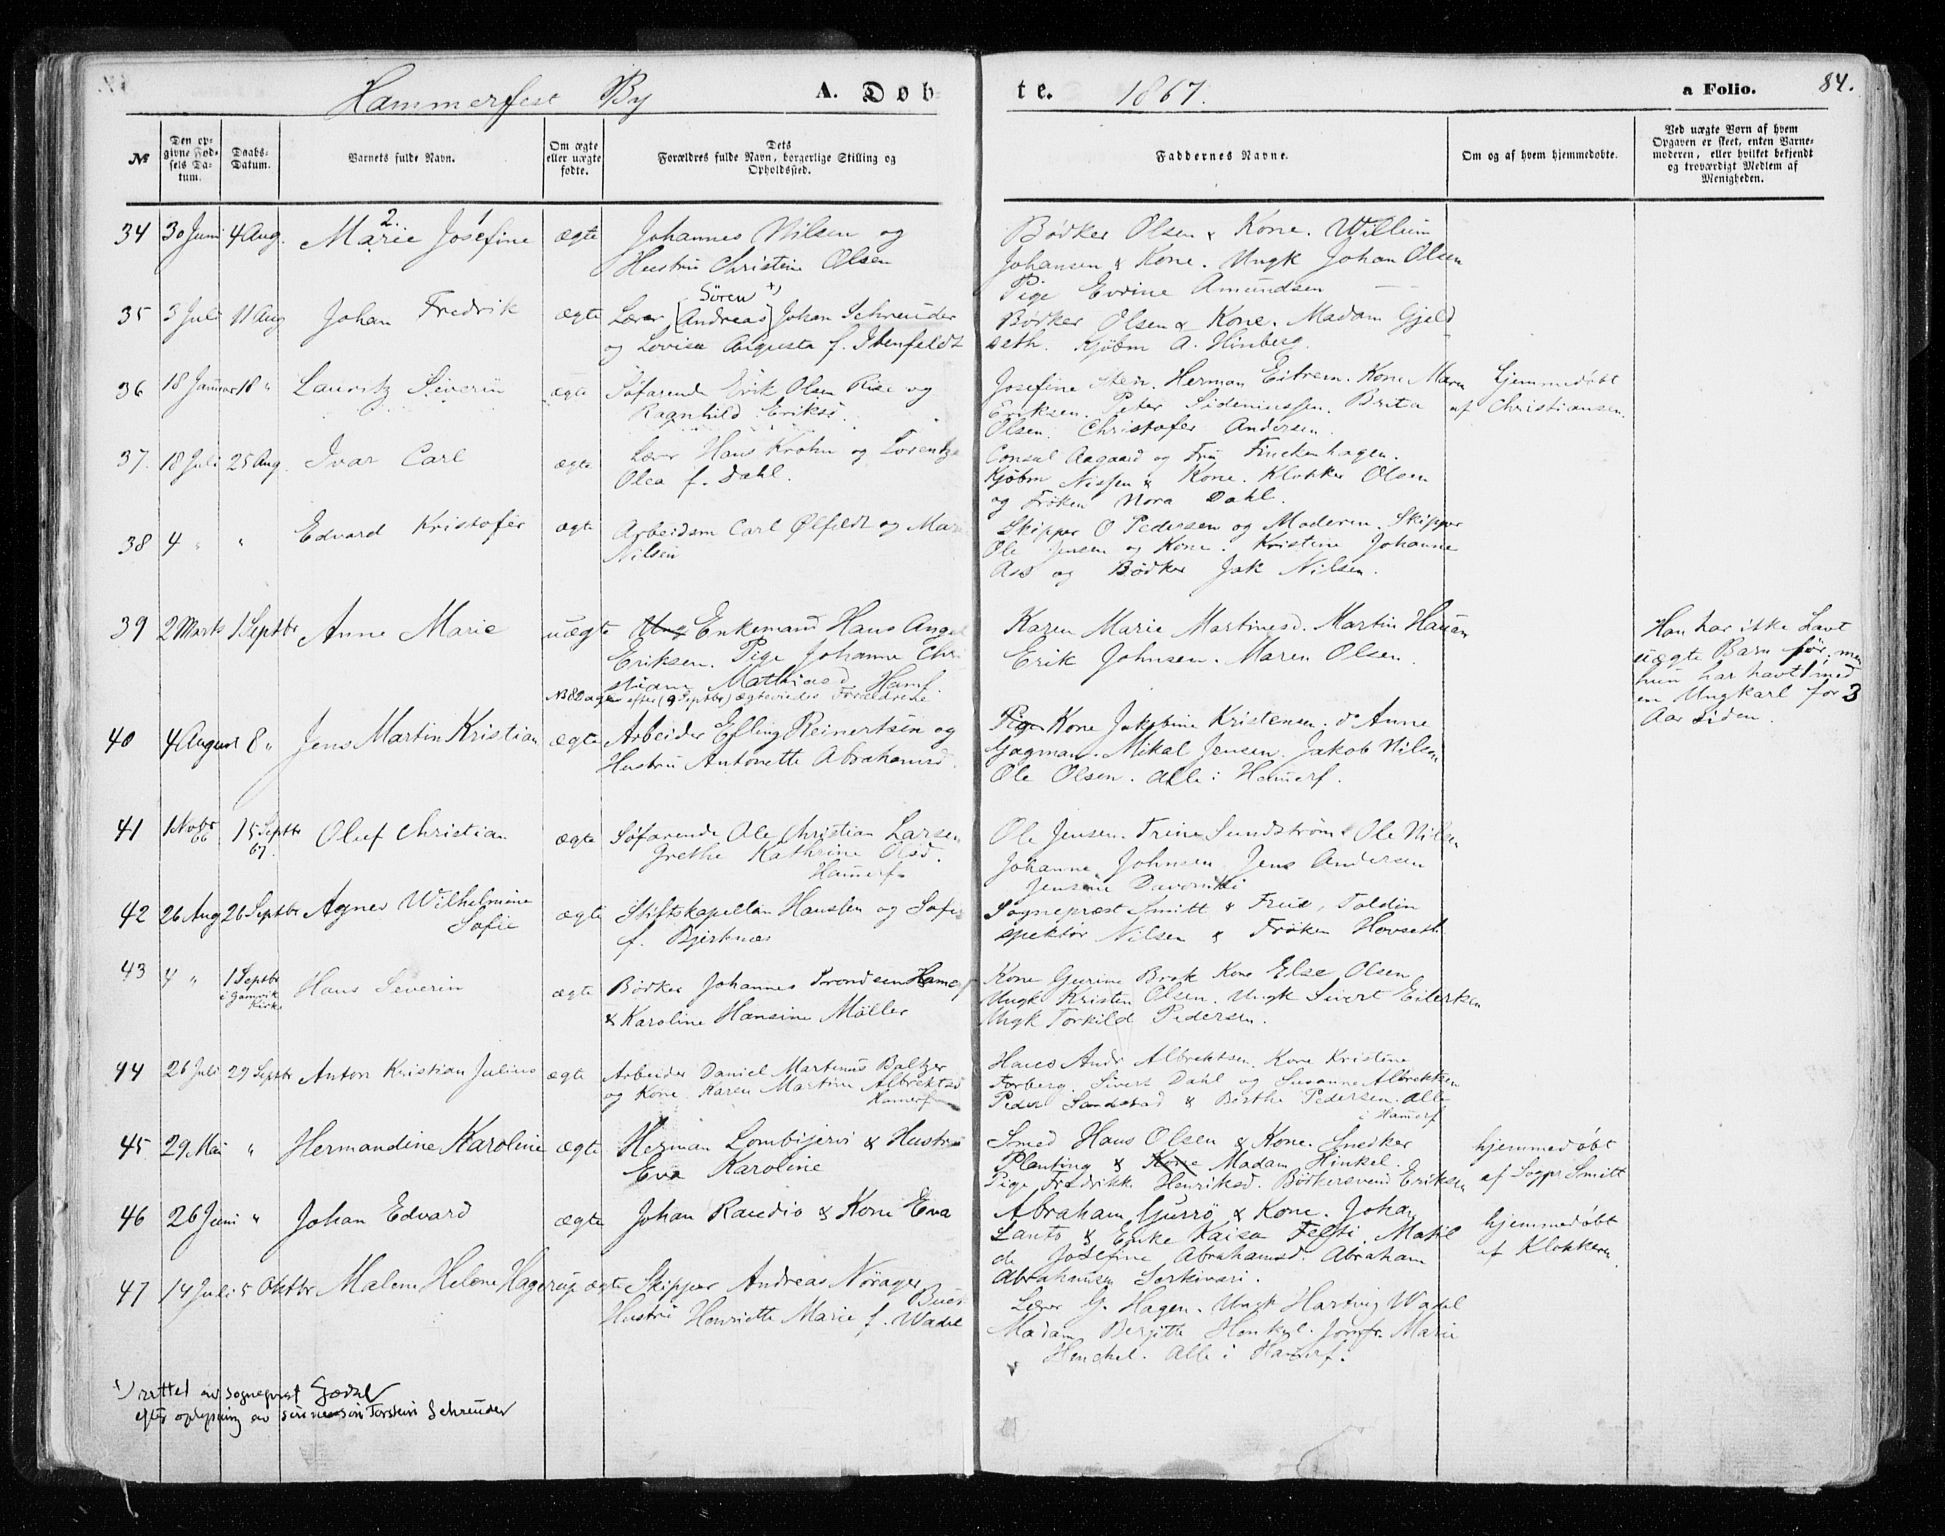 Hammerfest By A. Döbte. 1867. a Folio. 84.
№ | Den opgivne Fødsels Datum. | Daabs-Datum. | Barnets fulde Navn. | Om ægte eller uægte fødte. | Dets Forældres fulde Navn, borgerlige Stilling og Opholdssted. | Faddernes Navne. | Om og af hvem hjemmedøbte. | Ved uægte Børn af hvem Opgaven er skeet, enten Barnemoderen, eller hvilket bekjendt og troværdigt Medlem af Menigheden.
34 30 Juni 4 Aug. Marie 2. Josefine 1 ægte Johannes Nilsen og
Hustru Christine Olsen
Bødker Olsen & Kone. Willum
Johansen & Kone. Ungk Johan Olsen
Pige Evrine Amundsen
35 3 Juli 11 Aug Johan Fredrik ægte Lærer [Andreas] Søren +) Johan Schreuder
og Lovise Augusta f. Ibenfeldt
Bødker Olsen & Kone. Madam Gjeld
seth. Kjøbm A. Hinberg.
36 18 Januar 18 " Lauritz Severin ægte Søfarende Erik Olsen Rise og
Ragnhild Eriksd.
Josefine Sten. Herman Eitrem. Kone Maren
Eriksen. Peter Sideniussen. Brita
Olsen. Christofer Andersen.
hjemmedøbt
af Christiansen.
37. 18 Juli 25 Aug. Ivar Carl ægte Lærer Hans Krohn og Lorentze
Olea f. Dahl.
Consul Aagaard og Fru Finckenhagen.
Kjøbm Nissen & Kone. Klokker Olsen
og Frøken Nora Dahl.
38 4 " " Edvard Kristofer ægte Arbeidsm Carl Olfeldt og Mar
Nilsen
Skipper O Pedersen og Moderen. Skipper
Ole Jensen og Kone. Kristine Johanne
Aas og Bødker Jak Nilsen.
39 2 Marts 1 Septbr Anne Marie uægte Ung Enkemand Hans Angel
Eriksen. Pige Johanne Chri
stiane Mathiasd Hamf.
NB 8 Dage efter (9 Septbr) ægteviedes Forældrene
Karen Marie Martinesd. Martin Hauan
Erik Johnsen. Maren Olsen.
Han har ikke havt
uægte Barn før, men
hun har havt med
en Ungkarl for 3
Aar siden.
40 4 August 8 " Jens Martin Kristian ægte Arbeider Elling Reinertsen og
Hustru Antonette Abrahamsd.
Pige Kone Jakobine Kristensen. do Anne
Gagman. Mikal Jensen. Jakob Nilsen
Ole Olsen. Alle i Hamerf.
41 1 Novbr 66 15 Septbr 67. Oluf Christian ægte Søfarende Ole Christian Larsen
Grethe Kathrine Olsd.
Hamerf
Ole Jensen. Trine Sundstrøm & Ole Nilsen
Johanne Johnsen. Jens Andersen
42 26 Aug 26 Septbr Agnes Wilhelmine
Sofie ægte Stiftskapellan Hanssen og Sofie
f. Bjerknæs
Sogneprest Smitt & Frue, Toldin
spektør Nilsen & Frøken Hovseth
43 4 " 1 Septbr
i Gamvik
Kirke Hans Severin ægte Bødker Johannes Trondsen Hamerf
& Karoline Hansine Møller
Kone Gjurine Brok Kone Else Olsen
Ungk Kristen Olsen. Ungk Sivert Eilertsen
Ungk Torkild Pedersen.
44 26 Juli 29 Septbr Anton Kristian Julius ægte Arbeider Daniel Martinus Baltzer
og Kone Karen Martine Albrektsd
Hamerf
Hans Andr Albrektsen. Kone Kristine
Forberg. Sivert Dahl og Susanne Albrektsen
Peder Sandstad & Berthe Pedersen. Alle
i Hamerf
45 29 Mai " Hermandine Karoline ægte Herman Lombijervi & Hustru
Eva Karoline
Smed Hans Olsen & Kone. Snedker
Planting & Kone Madam Hinkel.
Pige Fredrikke Henriksd. Bødkersvend Eriksen
hjemmedøbt
af Sogpr Smitt
46 26 Juni " Johan Edvard ægte Johan Raudio & Kone Eva
Abraham Gurrö & Kone. Johan
Lanto & Enke Kaisa Feisti. Matil
de Josefine Abrahamsd. Abraham
Abrahamsen Sorkivari.
hjemmedøbt
af Klokkeren.
47 14 Juli 5 Oktbr Malene Helene Hagerup ægte Skipper Andreas Nörager
Buck
Hustru Henriette Marie f. Wadel
Lærer G. Hagen. Ungk Hartvig Wadel
Madam Bergitte Henkel. Jomfr. Marie
Henckel. Alle i Hamerf.
+) rettet av sogneprest Gjødal
efter oplysning av sönnesön Torstein Schreuder